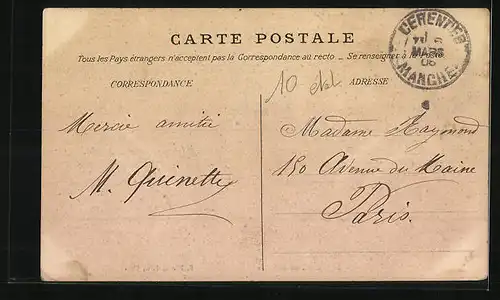 CARTE POSTALE
Tous les Pays étrangers n'acceptent pas la Correspondance au recto _ Se renseigner à la
CORRESPONDANCE
ADRESSE
CERENCES
MARS
06
MANCHE
10
Mercie amitié
M. Quinette
Madame Raymond
150 Avenue du Maine
Paris.